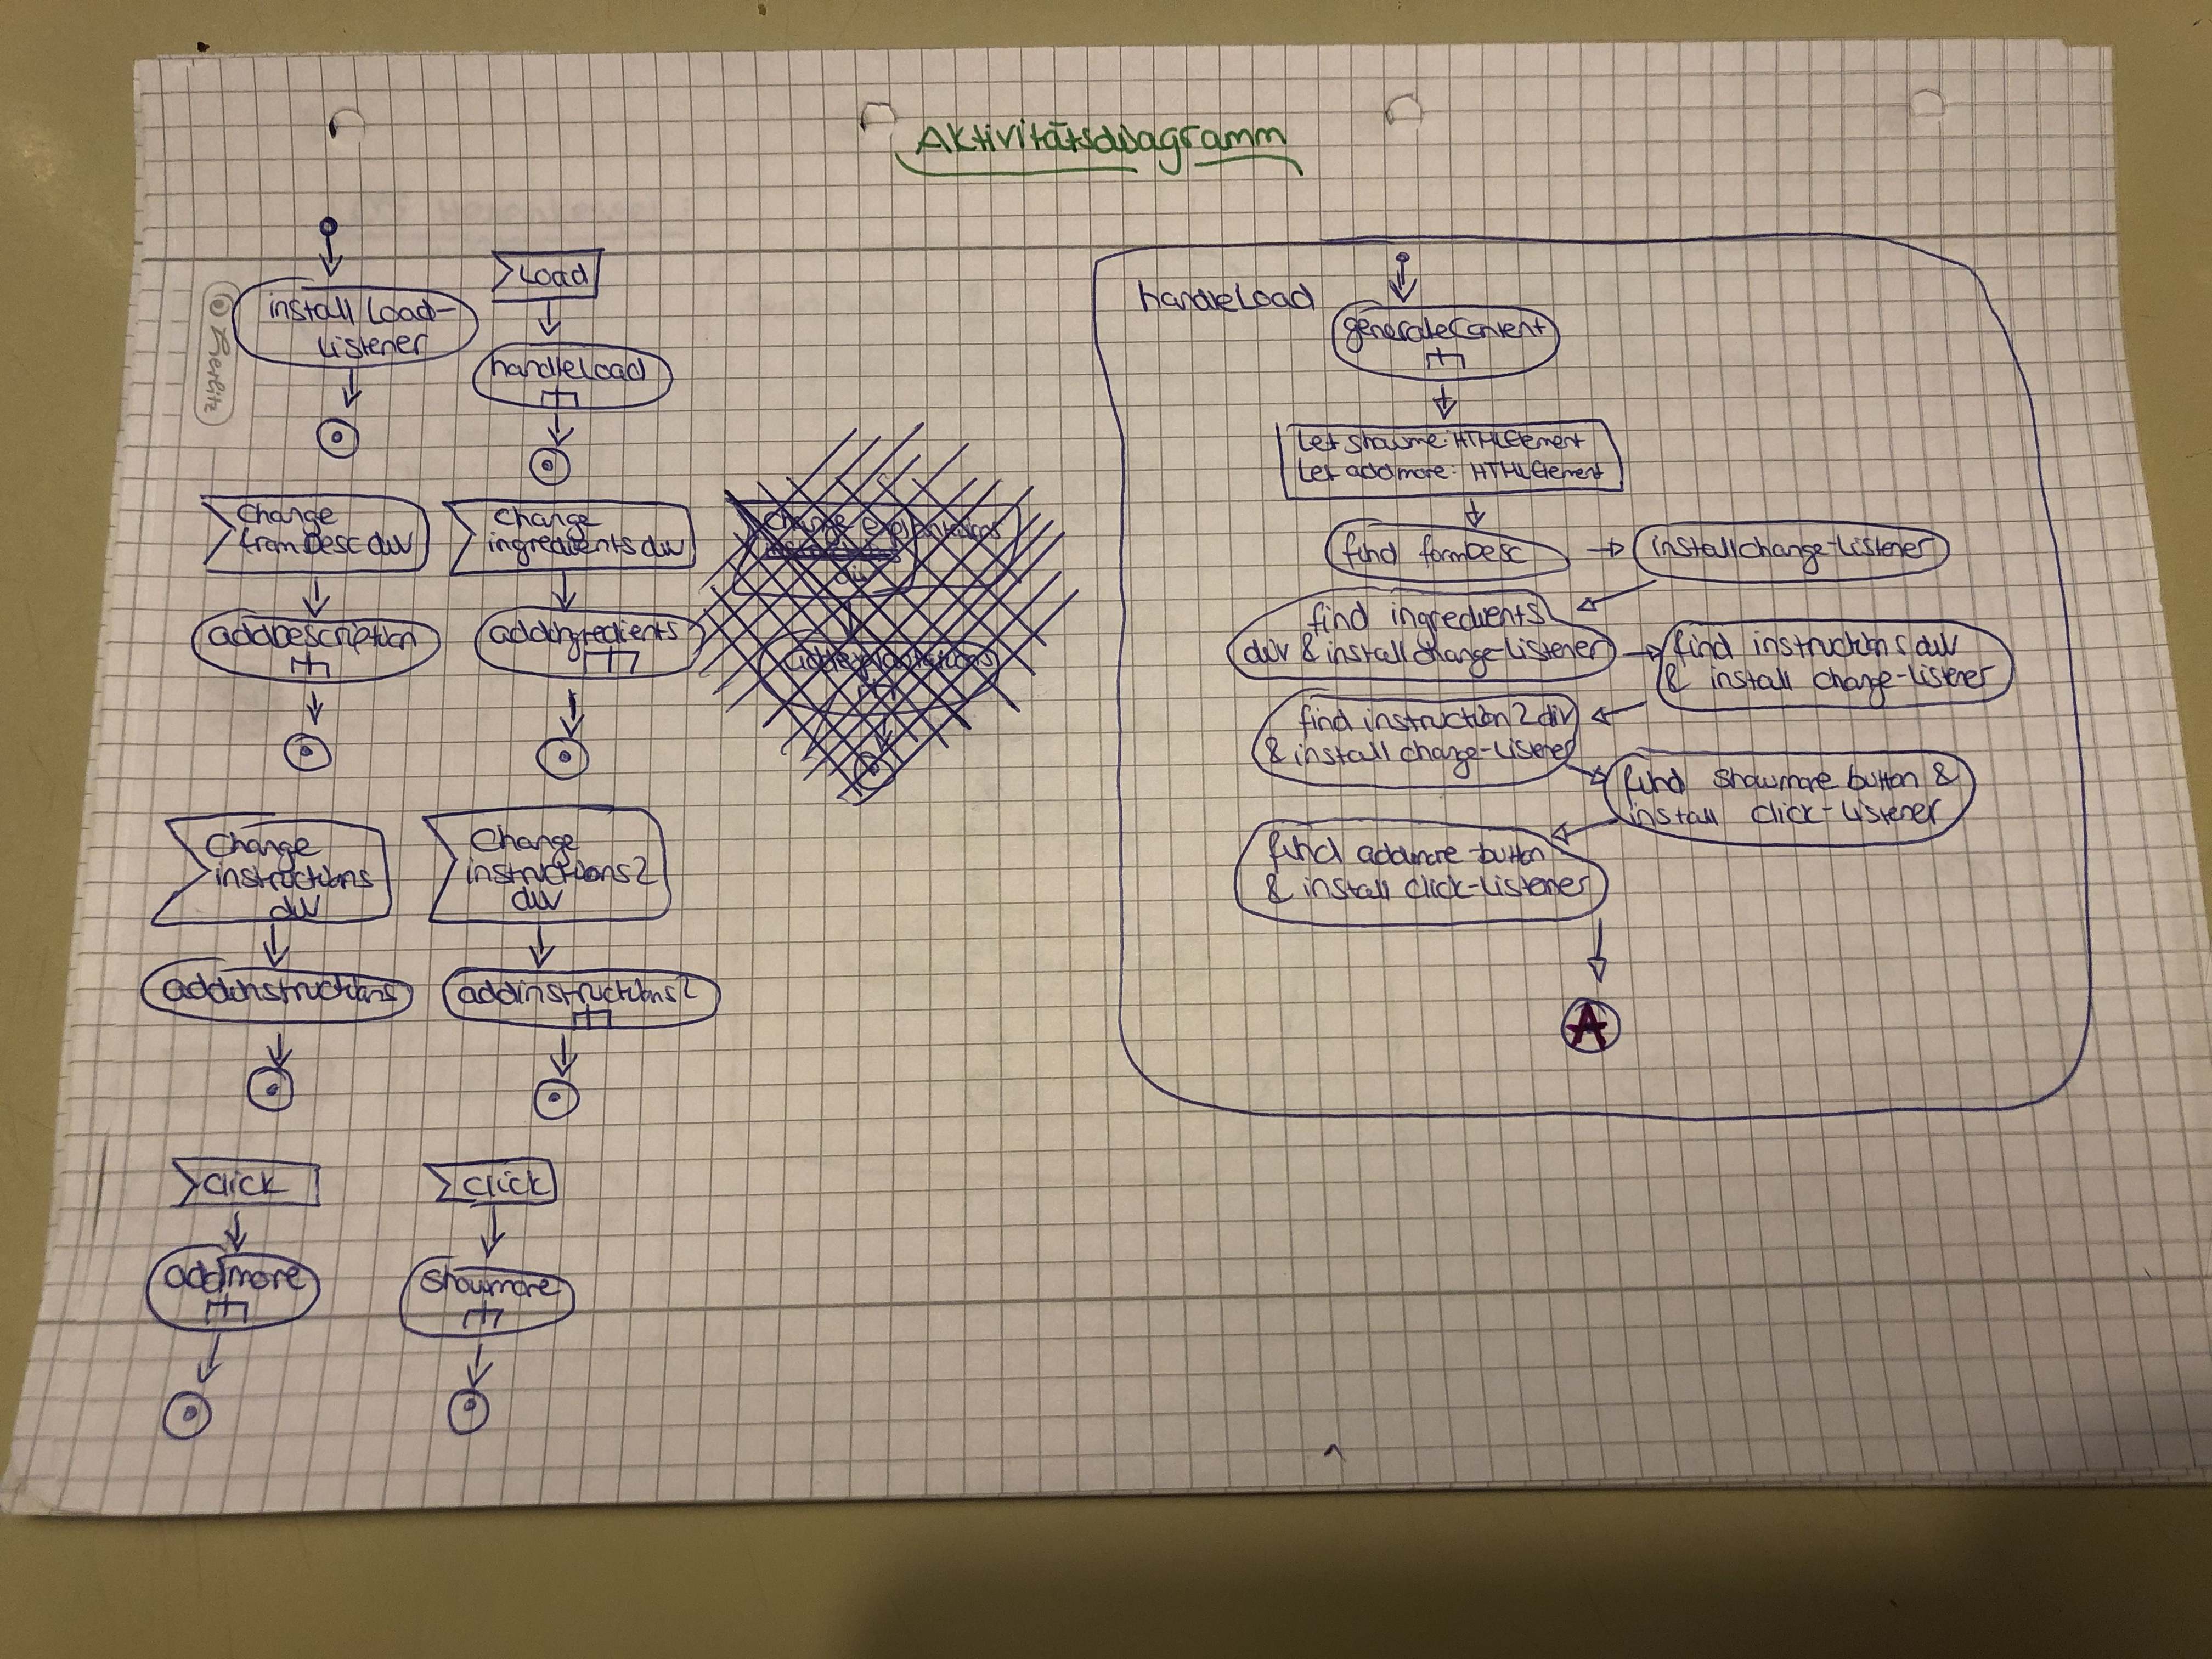 Aktivitätsdiagramm
© herlitz
install load-
listener
load
handleload
Change
from Desc div
addDescription
Change
ingredients div
addingredients
Change
instructions
div
addinstructions
Change
instructions2
div
addinstructions2
click
addmore
click
showmore
handleload
generateContent
let showme: HTMLElement
let addmore: HTMLElement
find formDesc
install change-listener
find ingredients
div & install change-listener
find instructions div
& install change-listener
find instruction2 div
& install change-listener
find showmore button &
install click-listener
find addmore-button
& install click-listener
A